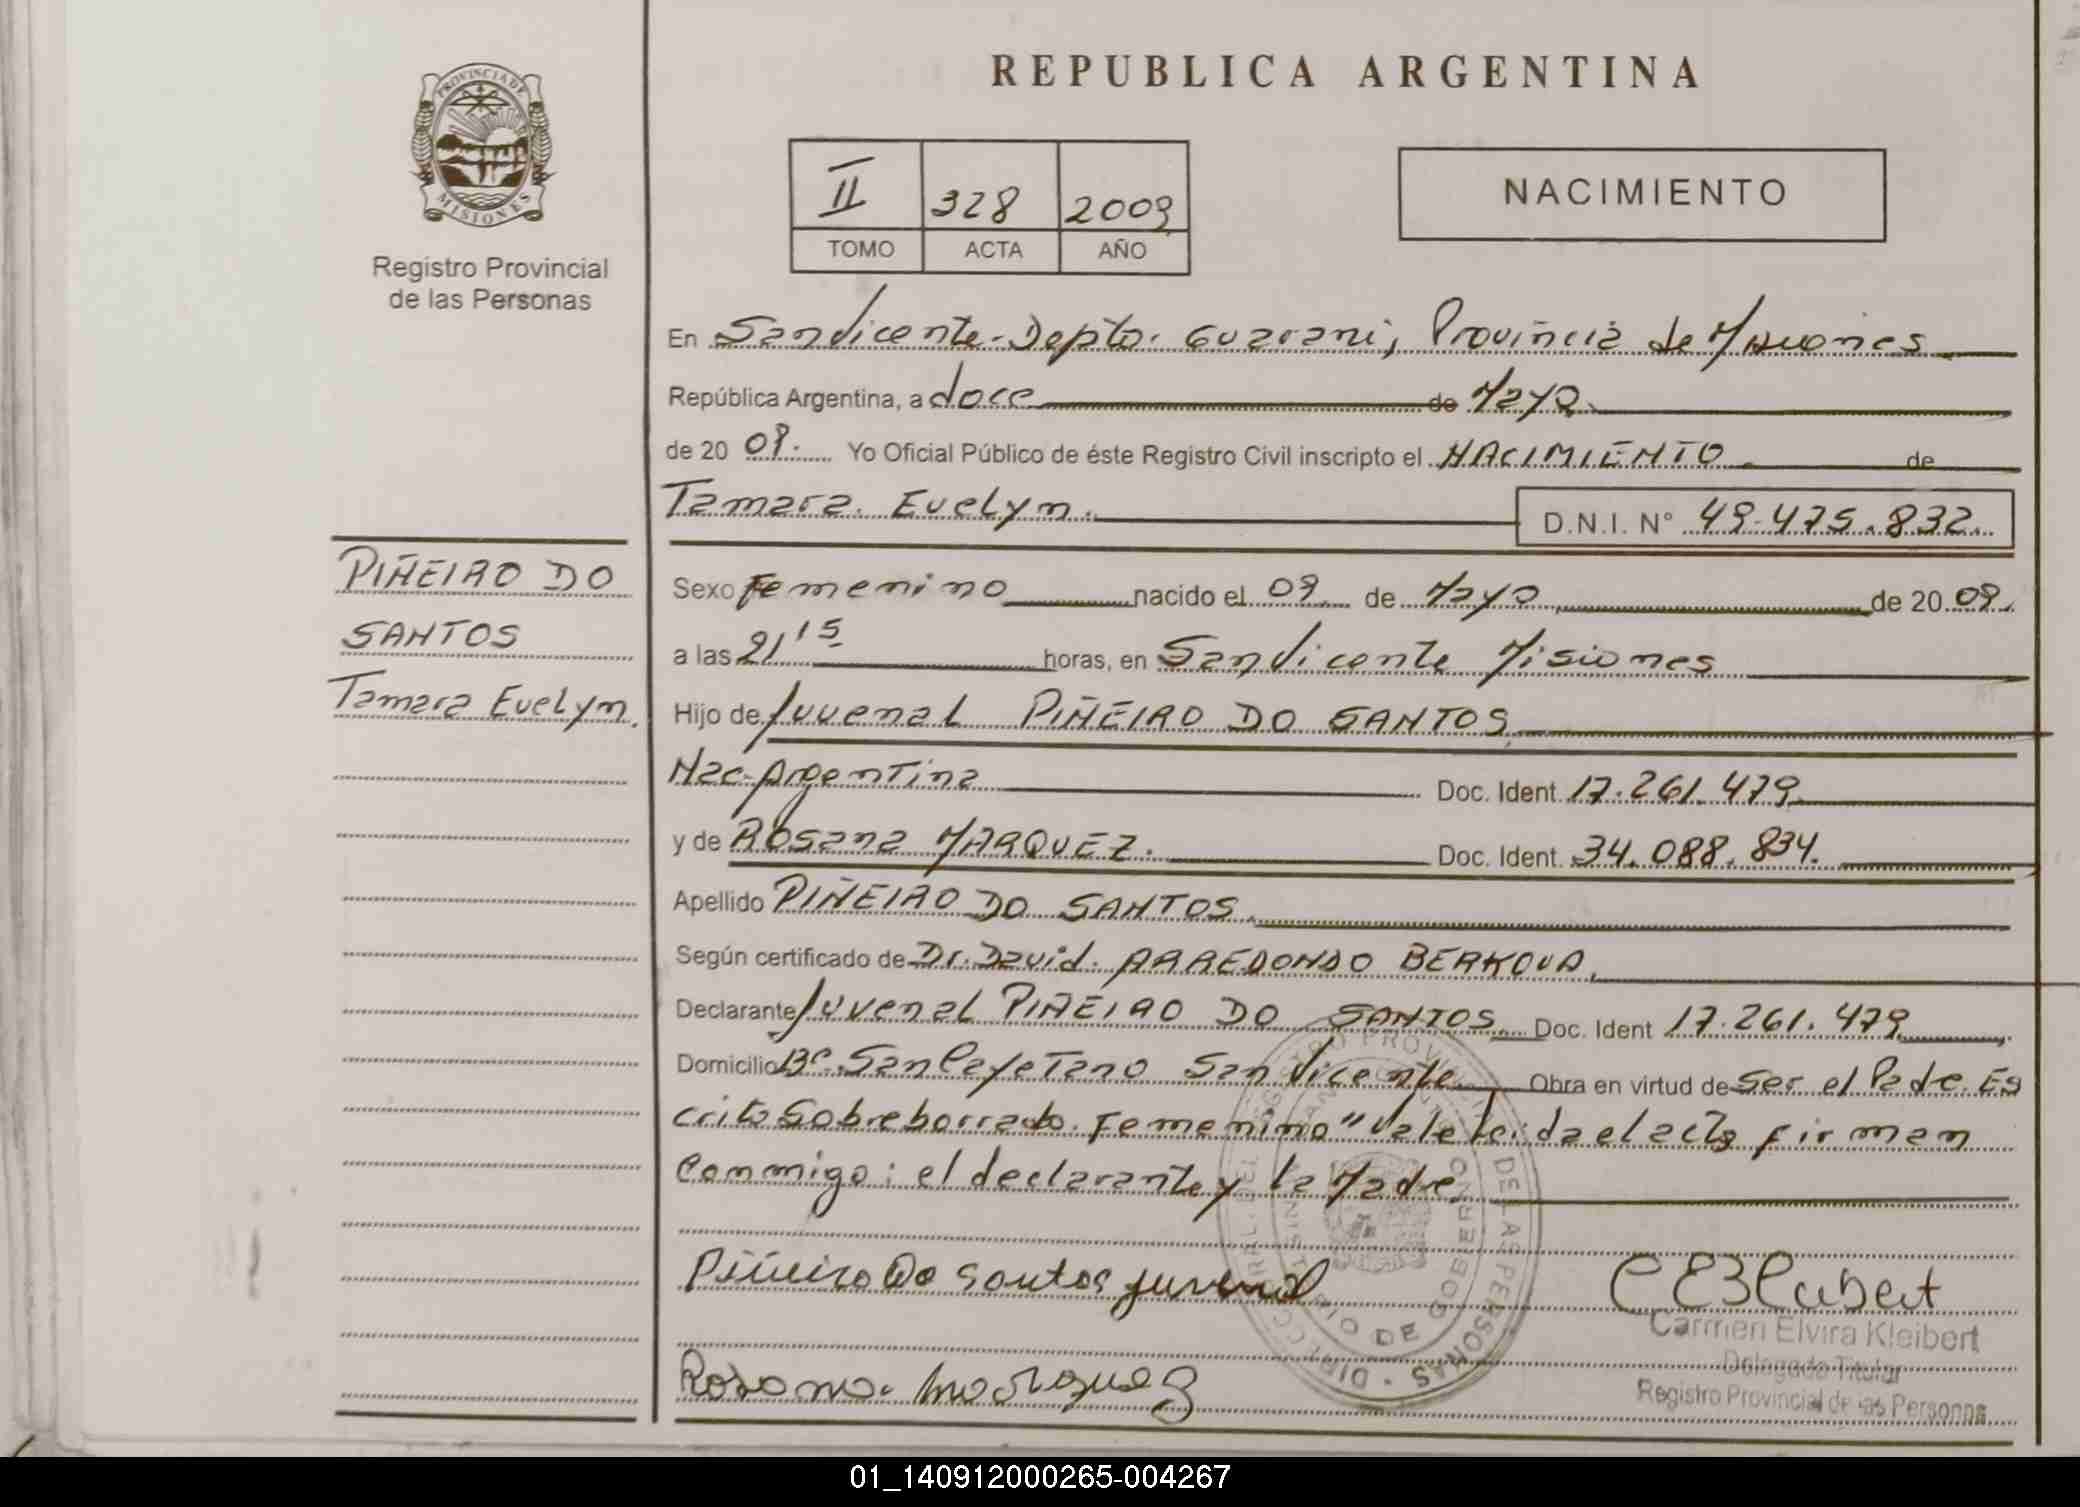 REPUBLICA ARGENTINA
PROVINCIA DE
MISIONES
Registro Provincial
de las Personas
II 328 2009
TOMO ACTA AÑO
NACIMIENTO
En San Vicente - Depto. Guarani, Provincia de Misiones
República Argentina, a doce de Mayo
de 20 09. Yo Oficial Público de éste Registro Civil inscripto el NACIMIENTO de
Tamara Evelyn. D.N.I. N° 49.475.832.
PIÑEIRO DO
SANTOS
Tamara Evelyn.
Sexo Femenino nacido el 09 de Mayo de 20 09.
a las 21 15 horas, en San Vicente Misiones
Hijo de Juvenal PIÑEIRO DO SANTOS
Nac. Argentina Doc. Ident. 17.261.479
y de Rosana MARQUEZ. Doc. Ident. 34.088.834.
Apellido PIÑEIRO DO SANTOS
Según certificado de Dr. David. ARREDONDO BERKOVA,
Declarante Juvenal PIÑEIRO DO SANTOS Doc. Ident 17.261.479
Domicilio Bº San Cayetano San Vicente Obra en virtud de ser el Padre. Es
crito sobreborrado. Femenino" Vale leida el acta firman
Conmigo: el declarante y la Madre
Piñeiro Do Santos Juvenal
Rosana Marquez
Carmen Elvira Kleibert
Delegado Titular
Registro Provincial de las Personas
01_140912000265-004267